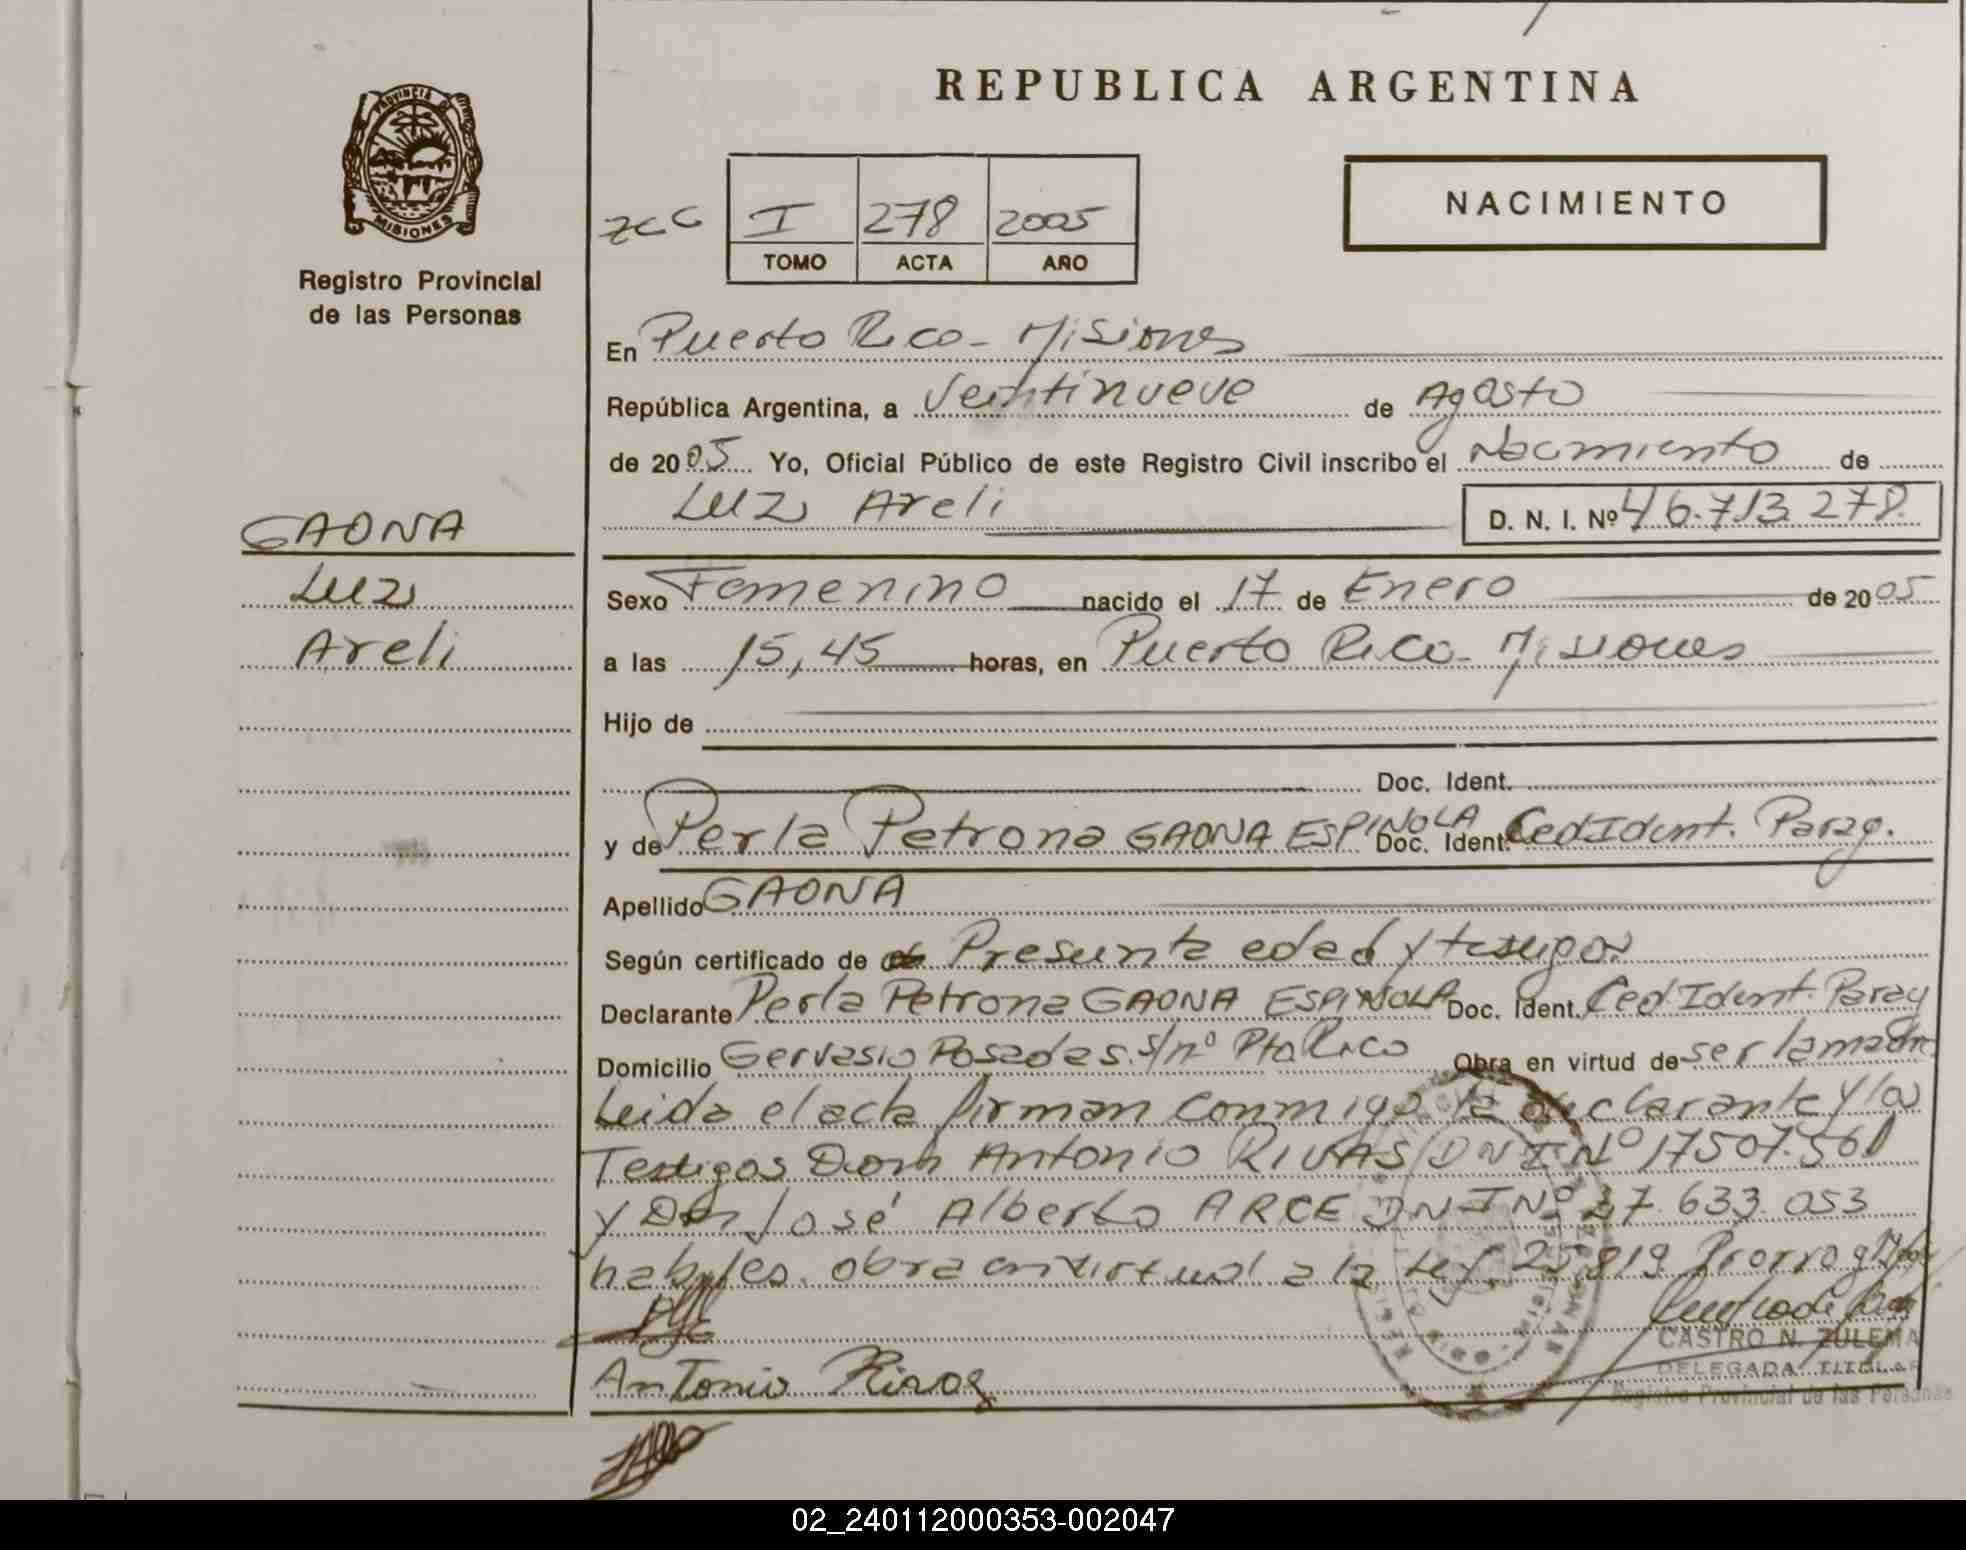 REPUBLICA ARGENTINA
PROVINCIA DE
MISIONES
Registro Provincial
de las Personas
NACIMIENTO
I 278 2005
TOMO ACTA AÑO
En Puerto Rico - Misiones
República Argentina, a Veintinueve de Agosto
de 2005 Yo, Oficial Público de este Registro Civil inscribo el Nacimiento de
Luz Areli D. N. I. Nº 46.713.278
GAONA
Luz
Areli
Sexo Femenino nacido el 17 de Enero de 2005
a las 15,45 horas, en Puerto Rico - Misiones
Hijo de
Doc. Ident.
y de Perla Petrona GAONA ESPINOLA Doc. Ident. Ced Ident. Parag.
Apellido GAONA
Según certificado de Presunta edad y testigos
Declarante Perla Petrona GAONA ESPINOLA Doc. Ident. Ced. Ident. Parag
Domicilio Gervasio Posadas s/nº Pto Rico Obra en virtud de ser la madre
Leida el acta firman conmigo la declarante y los
Testigos Don Antonio RIVAS DNI Nº 17507.561
y Don José Alberto ARCE DNI Nº 27.633.053
habiles. obra en virtud a la Ley 25.819
Antonio Rivas
CASTRO N. ZULEMA
DELEGADA TITULAR
Registro Provincial de las Personas
02_240112000353-002047